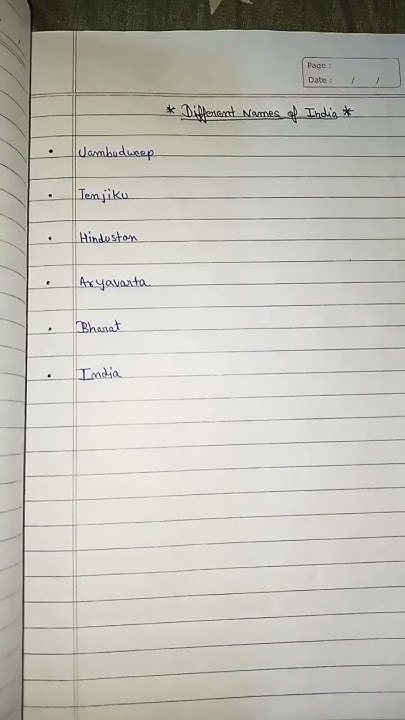 Page :
Date :    /    /
* Different Names of India *
• Jambudweep
• Tenjiku
• Hindustan
• Aryavarta
• Bharat
• India